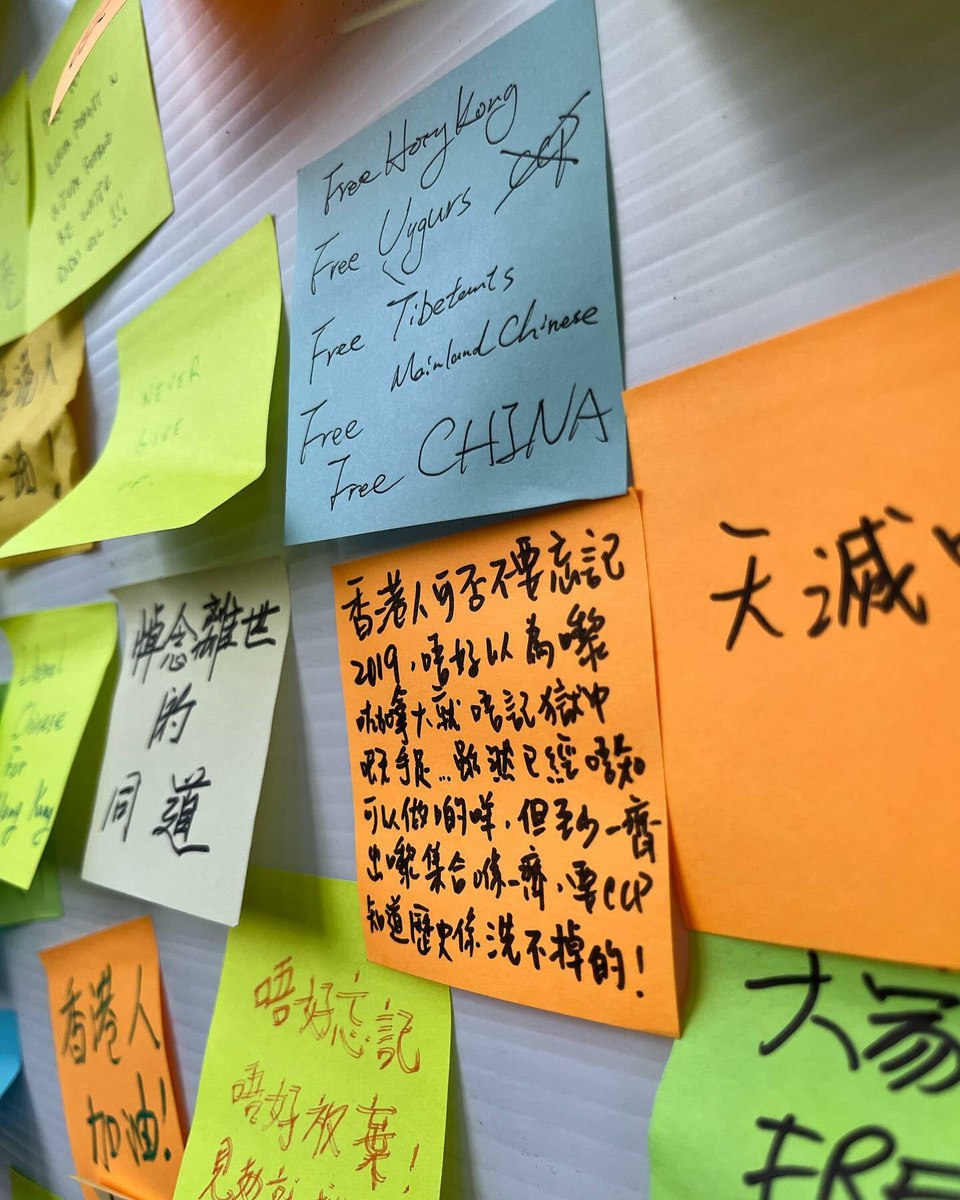 Free Hong Kong
CCP
Free Uygurs
Free Tibetants
Free Mainland Chinese
Free CHINA
NEVER
GIVE
香港人可否不要忘記
2019，唔好以為嚟
加拿大就唔記獄中
嘅手足…雖然已經唔知
可以做啲咩，但至少一齊
出嚟集合喺一齊，要CCP
知道歷史係洗不掉的！
天滅
悼念離世
的
同道
Chinese
For
Hong Kong
香港人
加油！
唔好忘記
唔好放棄！
大家
FRE